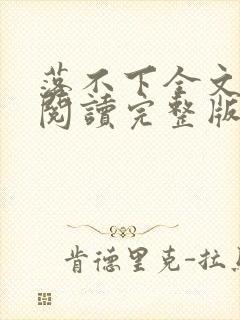 落不下全文
閱讀完整版
肯德里克-拉